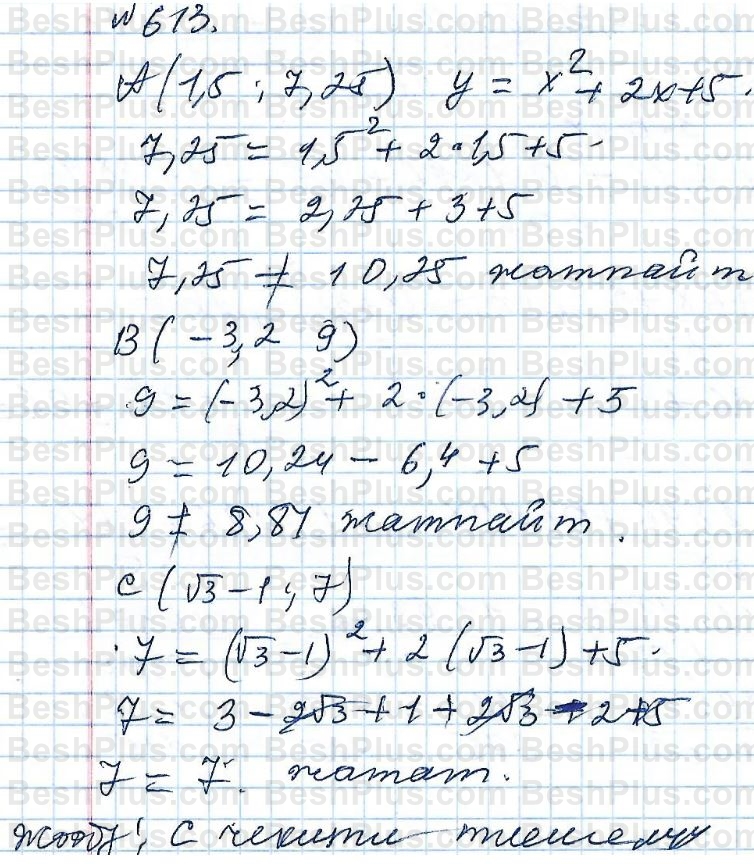 № 613.
A(1,5 ; 7,25) y = x² + 2x+5.
7,25 = 1,5² + 2·1,5+5.
7,25 = 2,25 + 3+5
7,25 ≠ 10,25 жатпайт
B( -3,2 9)
9 = (-3,2)² + 2·(-3,2) + 5
9 = 10,24 - 6,4 +5
9 ≠ 8,81 жатпайт.
C (√3 -1 ; 7)
7 = (√3 -1)² + 2 (√3 -1) +5.
7 = 3 - 2√3 + 1 + 2√3 - 2+5
7 = 7. жатат.
жообу: C чекити
BeshPlus.com